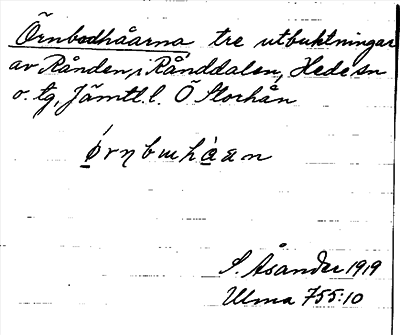 Örnbodhåarna, tre utbuktningar
av Rånden, i Rånddalen, Hede sn
o. tg, Jämtl. l. Ö Storhån
ǿrnbuhàan
S. Åsander 1919
Ulma 755:10